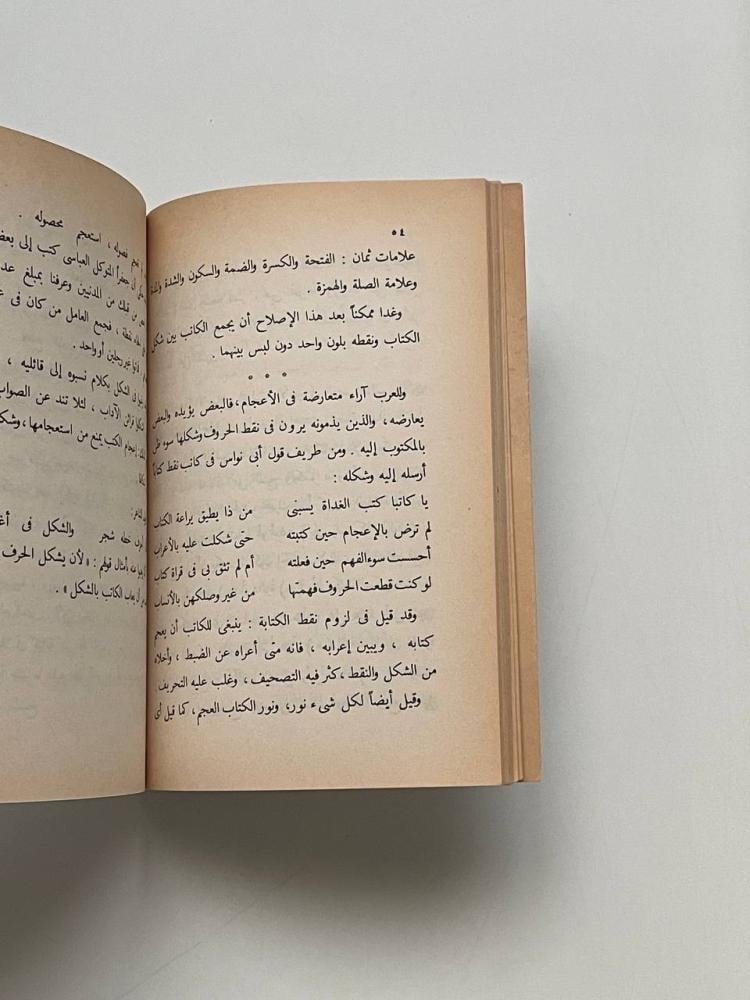 ٥٤
علامات ثمان : الفتحة والكسرة والضمة والسكون والشدة والمدة
وعلامة الصلة والهمزة .
وغدا ممكناً بعد هذا الإصلاح أن يجمع الكاتب بين شكل
الكتاب ونقطه بلون واحد دون لبس بينهما .
* * *
وللعرب آراء متعارضة فى الأعجام، فالبعض يؤيده والبعض
يعارضه، والذين يذمونه يرون فى نقط الحروف وشكلها سوء ظن
بالمكتوب إليه . ومن طريف قول أبى نواس فى كاتب نقط كتاباً
أرسله إليه وشكله :
يا كاتبا كتب الغداة يسبنى من ذا يطيق يراعة الكتاب
لم ترض بالإعجام حين كتبته حتى شكلت عليه بالأعراب
أحسست سوء الفهم حين فعلته أم لم تثق بى فى قراة كتاب
لو كنت قطعت الحروف فهمتها من غير وصلكهن بالأنساب
وقد قيل فى لزوم نقط الكتابة : ينبغى للكاتب أن يعجم
كتابه ، ويبين إعرابه ، فانه متى أعراه عن الضبط ، وأخلاه
من الشكل والنقط ،كثر فيه التصحيف، وغلب عليه التحريف
وقيل أيضاً لكل شىء نور، ونور الكتاب العجم، كما قيل أى
فصوله ، استعجم محصوله .
جعفراً المتوكل العباسى كتب إلى بعض
من قبلك من المدنيين وعرفنا بمبلغ
نقطة ، فجمع العامل من كان فى
غير رجلين أو واحد .
فى الشكل بكلام نسبوه إلى قائليه ،
الآداب ، لئلا تند عن الصواب
إعجام الكتب يمنع من استعجامها، وشكلها
خطه شجر والشكل فى
بأمثال قولهم : « لأن يشكل الحرف
يعاب الكاتب بالشكل » .